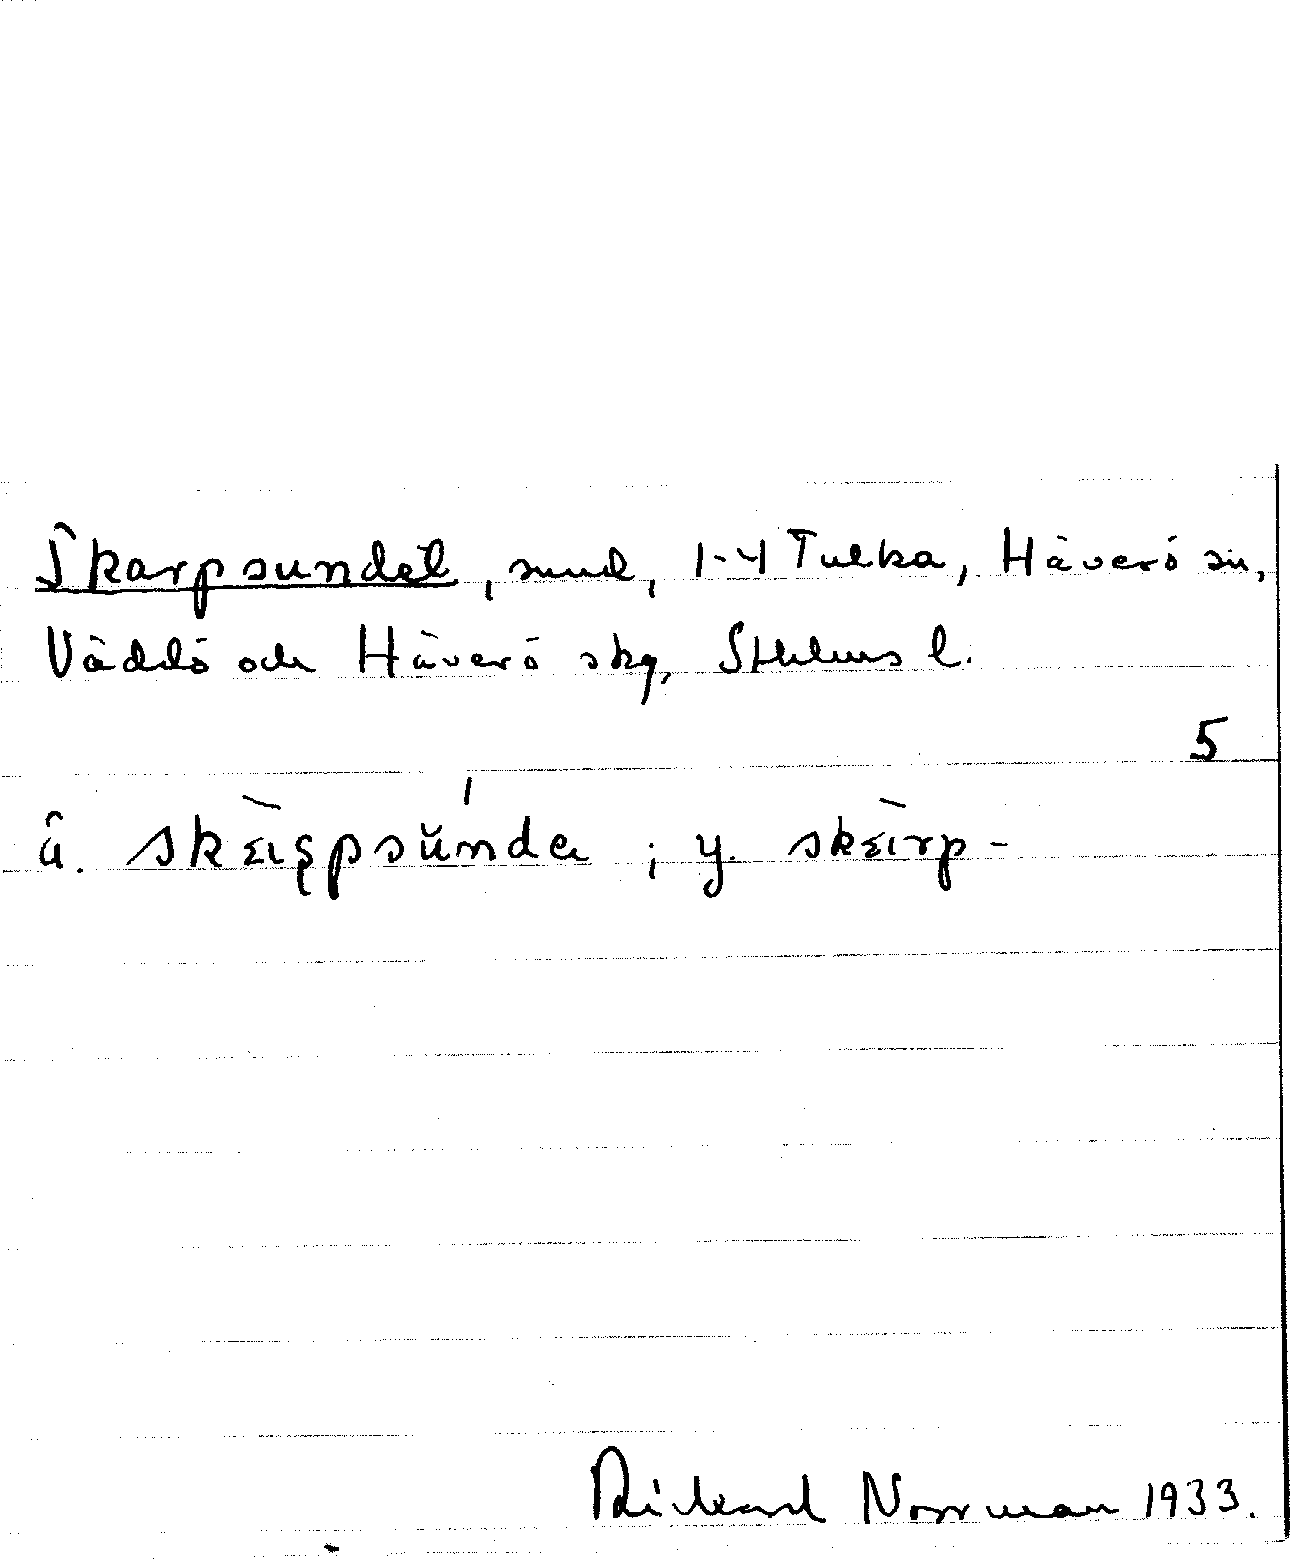 Skarpsundet, sund, 1-4 Tulka, Häverö sn,
Väddö och Häverö skg, Sthlms l.
5
ä. ; y.
Rickard Norrman 1933.